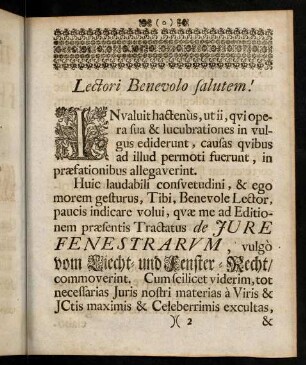 ( o )
Lectori Benevolo salutem!
INvaluit hactenùs, ut ii, qvi ope-
ra sua & lucubrationes in vul-
gus ediderunt, causas qvibus
ad illud permoti fuerunt, in
præfationibus allegaverint.
Huic laudabili consvetudini, & ego
morem gesturus, Tibi, Benevole Lector,
paucis indicare volui, qvæ me ad Editio-
nem præsentis Tractatus de JURE
FENESTRARVM, vulgò
vom Liecht- und Fenster-Recht/
commoverint. Cum scilicet viderim, tot
necessarias Juris nostri materias à Viris &
JCtis maximis & Celeberrimis excultas,
)( 2 &